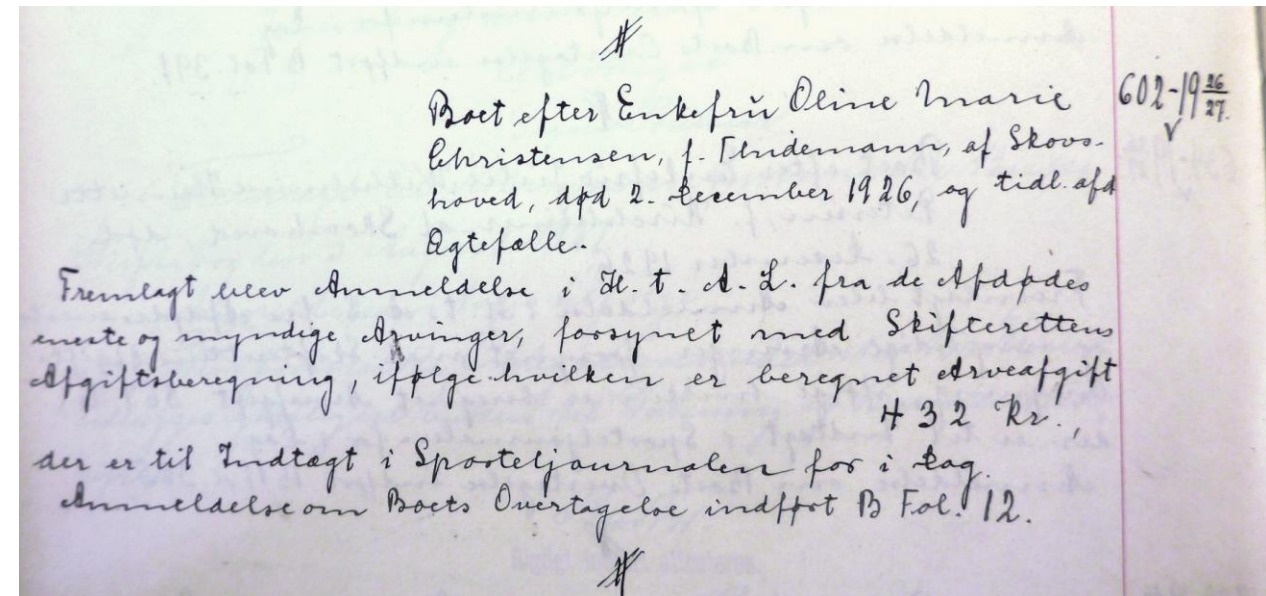 #
Boet efter Enkefru Oline Marie
Christensen, f. Thidemann, af Skovs-
hoved, død 2. December 1926, og tidl. afd
Ægtefælle.
602-19 26/27.
Fremlagt blev Anmeldelse i H. t. A. L. fra de Afdødes
eneste og myndige Arvinger, forsynet med Skifterettens
Afgiftsberegning, ifølge hvilken er beregnet Arveafgift
432 Kr.,
der er til Indtægt i Sporteljournalen for i Dag.
Anmeldelse om Boets Overtagelse indført B Fol. 12.
#